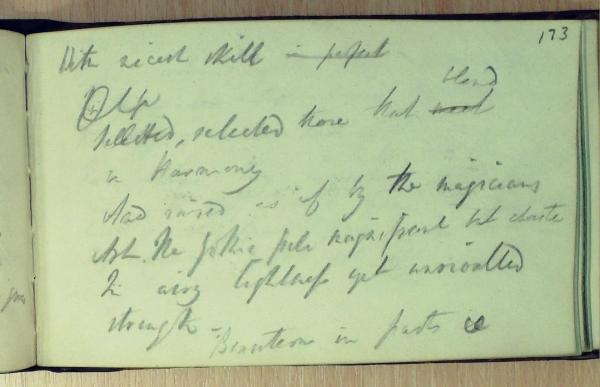 173
With nicest skill in perfect
blend
Selected, selected those that most
in Harmony
And raised as if by the magicians
Art. The gothic pile magnificent but chaste
In airy lightness yet unrivalled
strength -
Beauteous in parts